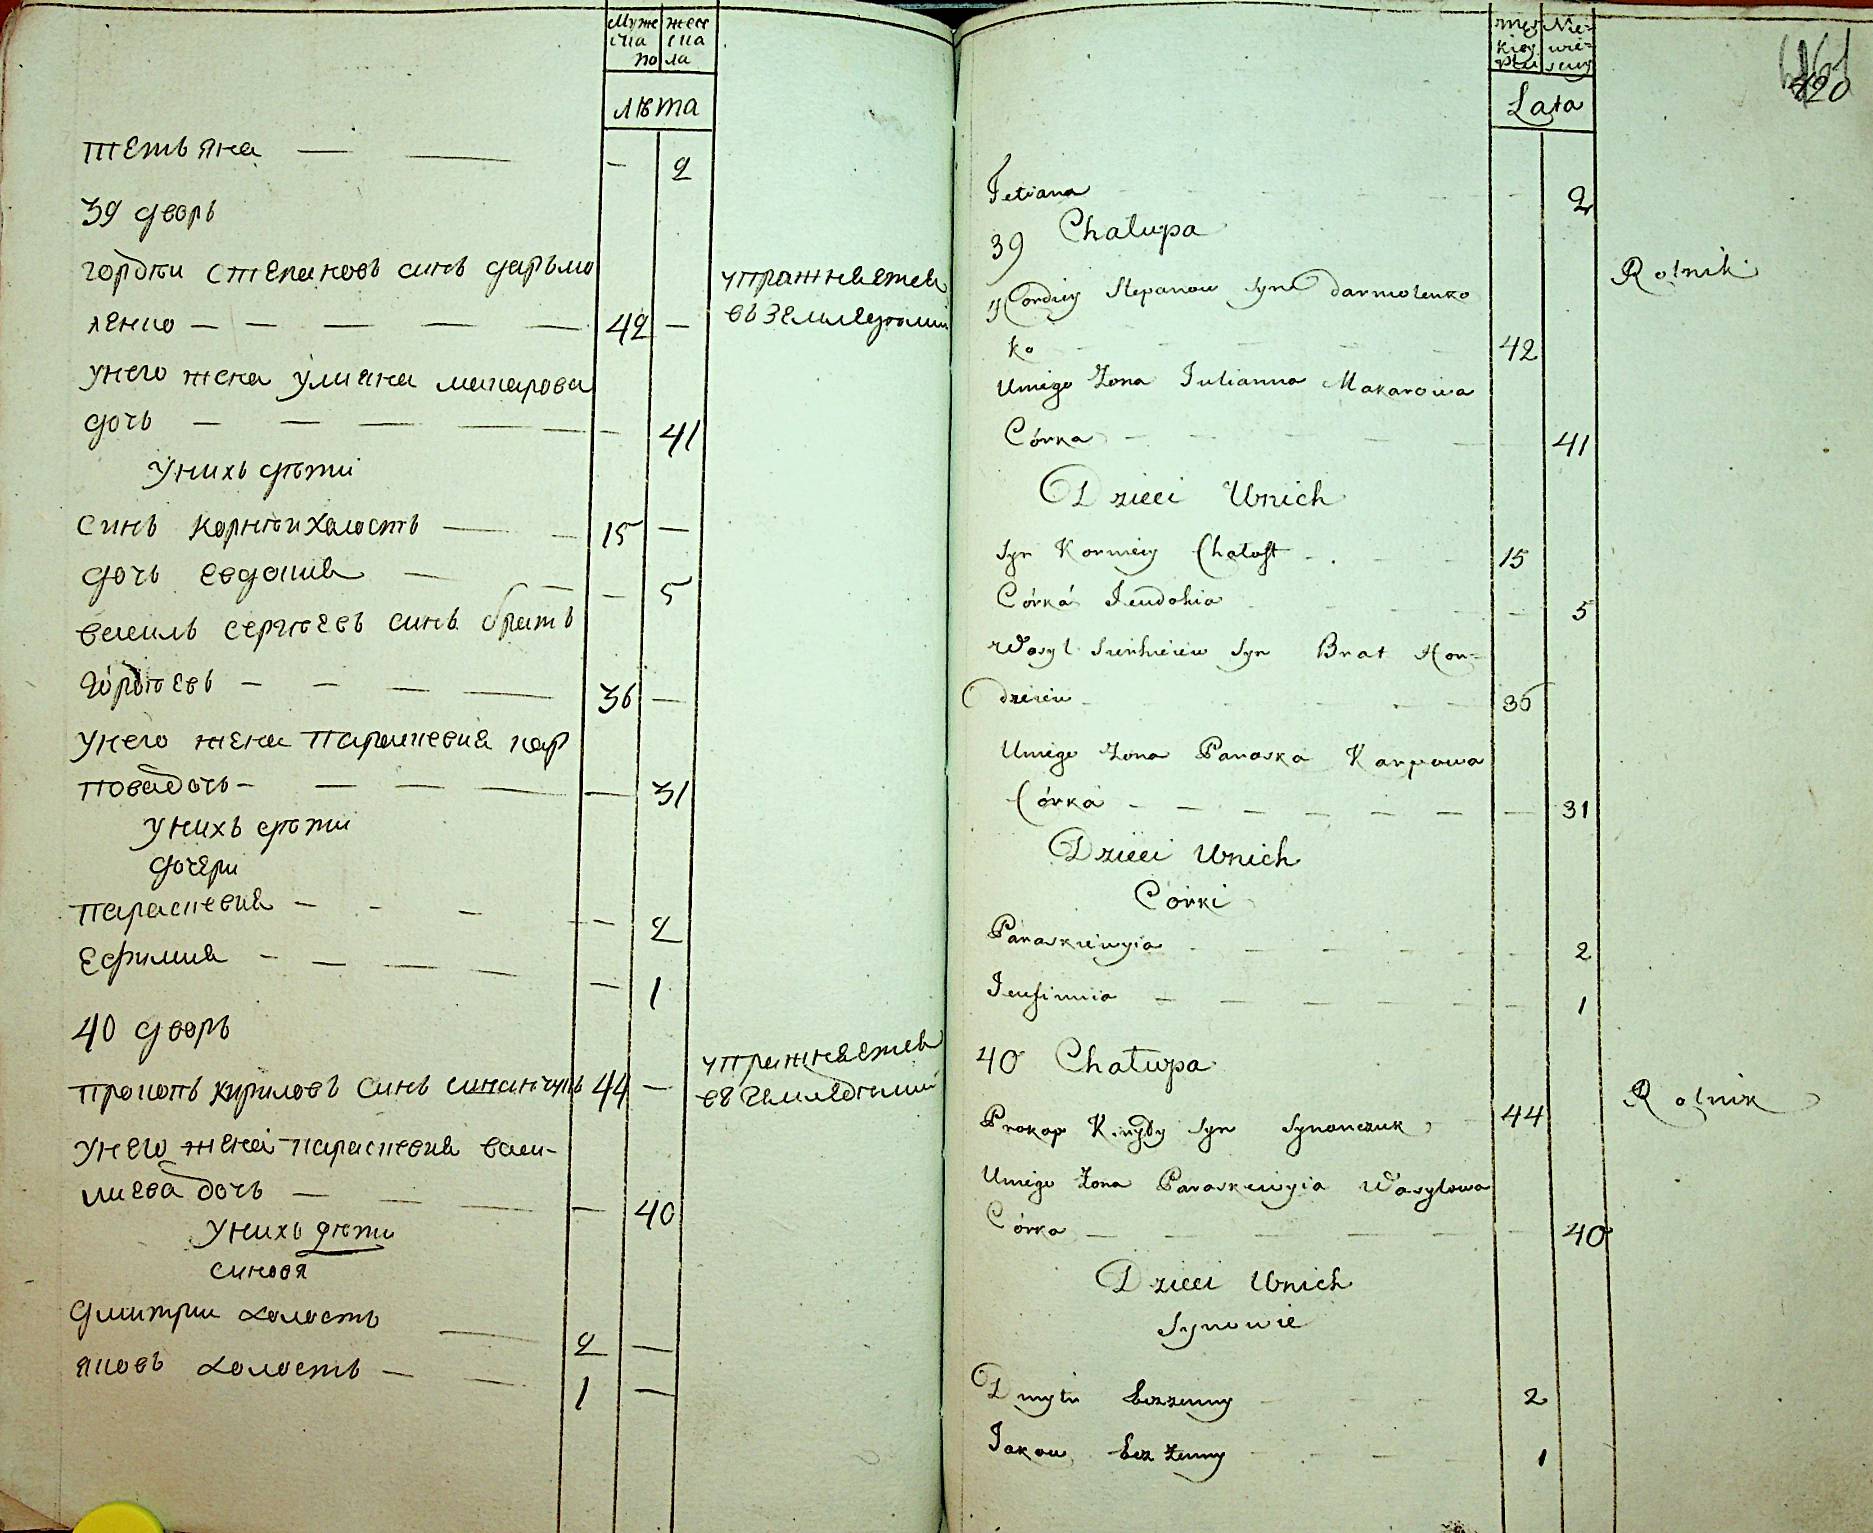 Муже жен
ска ска
по ла
лѣта
тетьяна — — — 2
39 дворъ
гордѣи степановъ синъ дарьмо
ленко — — — — — 42 —
унего жена улияна макарова
дочь — — — — — — 41
унихъ дѣти
синъ корнѣи холостъ — — 15 —
дочь евдокия — — — 5
василь сергѣевъ синъ братъ
гордѣевъ — — — — 36 —
унего жена параскевия кар
повадочь — — — — — 31
унихъ дѣти
дочери
параскевия — — — — — 2
Ефимия — — — — — 1
40 дворъ
прокопъ кириловъ синъ синанчукъ 44 —
унего жена параскевия васи-
лиева дочь — — — — 40
унихъ дѣти
синовя
дмитри холостъ — 2 —
яковъ холостъ — — 1 —
упражняется
въ земледѣлии
упражняется
въ земледѣлии
męz Nie-
kiey wie-
płci sciey
Lata
420
Tetiana - - - - 2
39 Chałupa
Hordiey Stepanow Syn Darmolenko
ko - - - - 42
Rolnik
Uniego Zona Iulianna Makarowa
Córka - - - - 41
Dzieci Unich
Syn Korniey Chołost - - - 15
Córka Jeudokia - - - 5
Wasyl Sierhieiew Syn Brat Hor-
dzieiew - - - - 36
Uniego Zona Paraska Karpowa
Córka - - - - - - - 31
Dzieci Unich
Córki
Paraskiewyia - - - - 2
Jeufimia - - - - - 1
40 Chałupa
Prokop Kiryły Syn Synonczuk - 44
Rolnik
Uniego Zona Paraskiewyia Wasylowa
Córka - - - - - - 40
Dzieci Unich
Synowie
Dmytri bezzenny - - - 2
Jakow bez zenny - - - 1